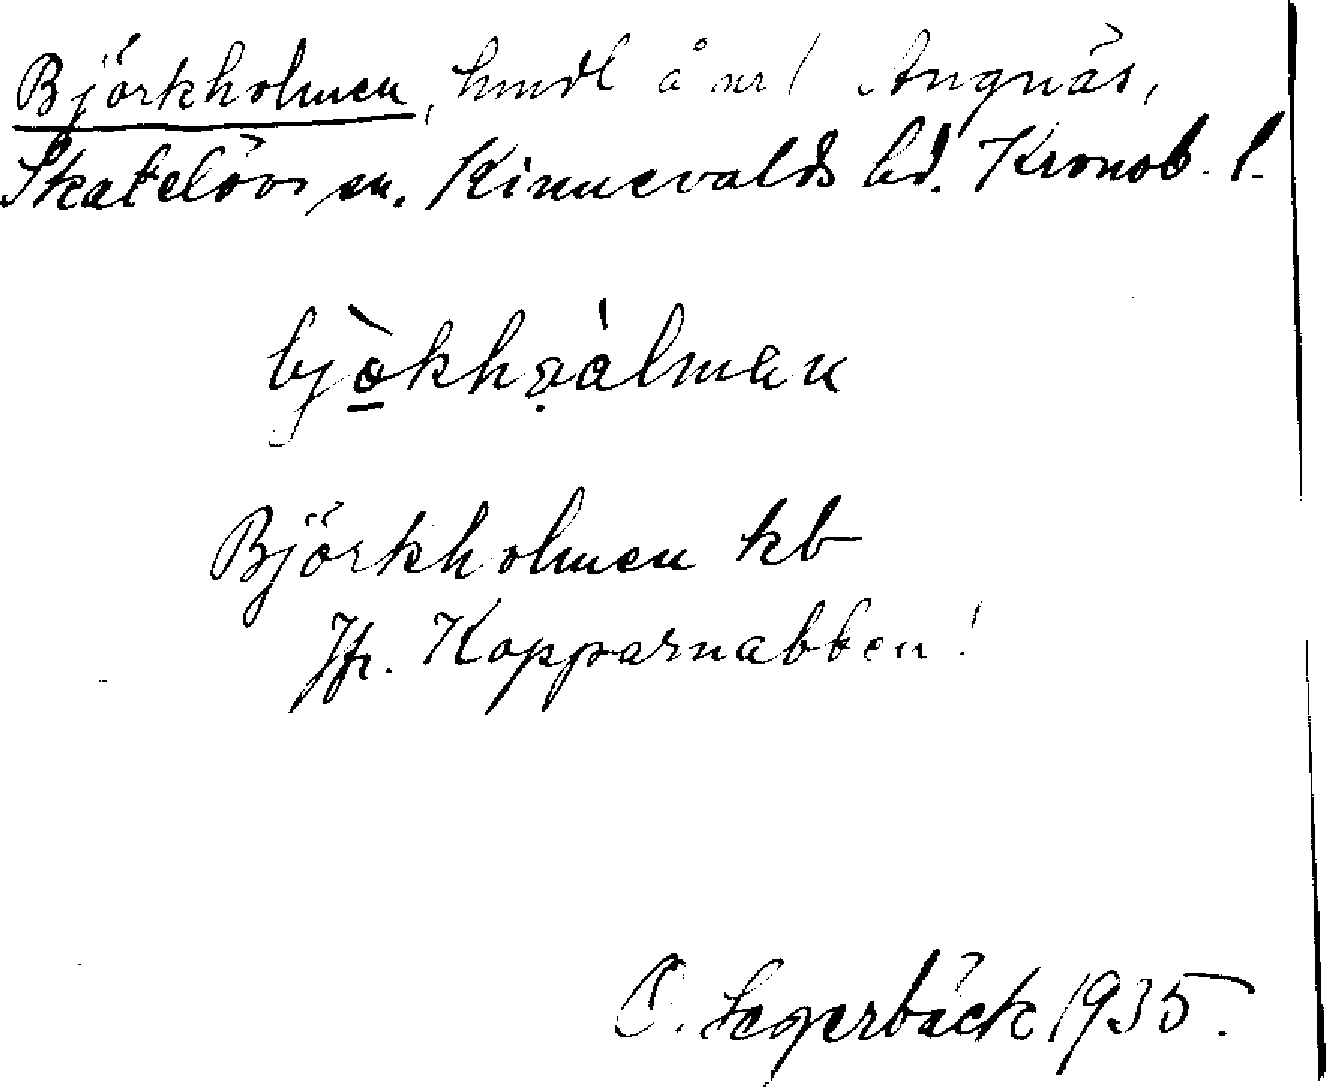 Björkholmen, hmdl å nr 1 Angnäs,
Skatelövs sn. Kinnevalds hd. Kronob. l.
Björkholmen kb
Jfr. Kopparnabben!
C. Segerbäck 1935.